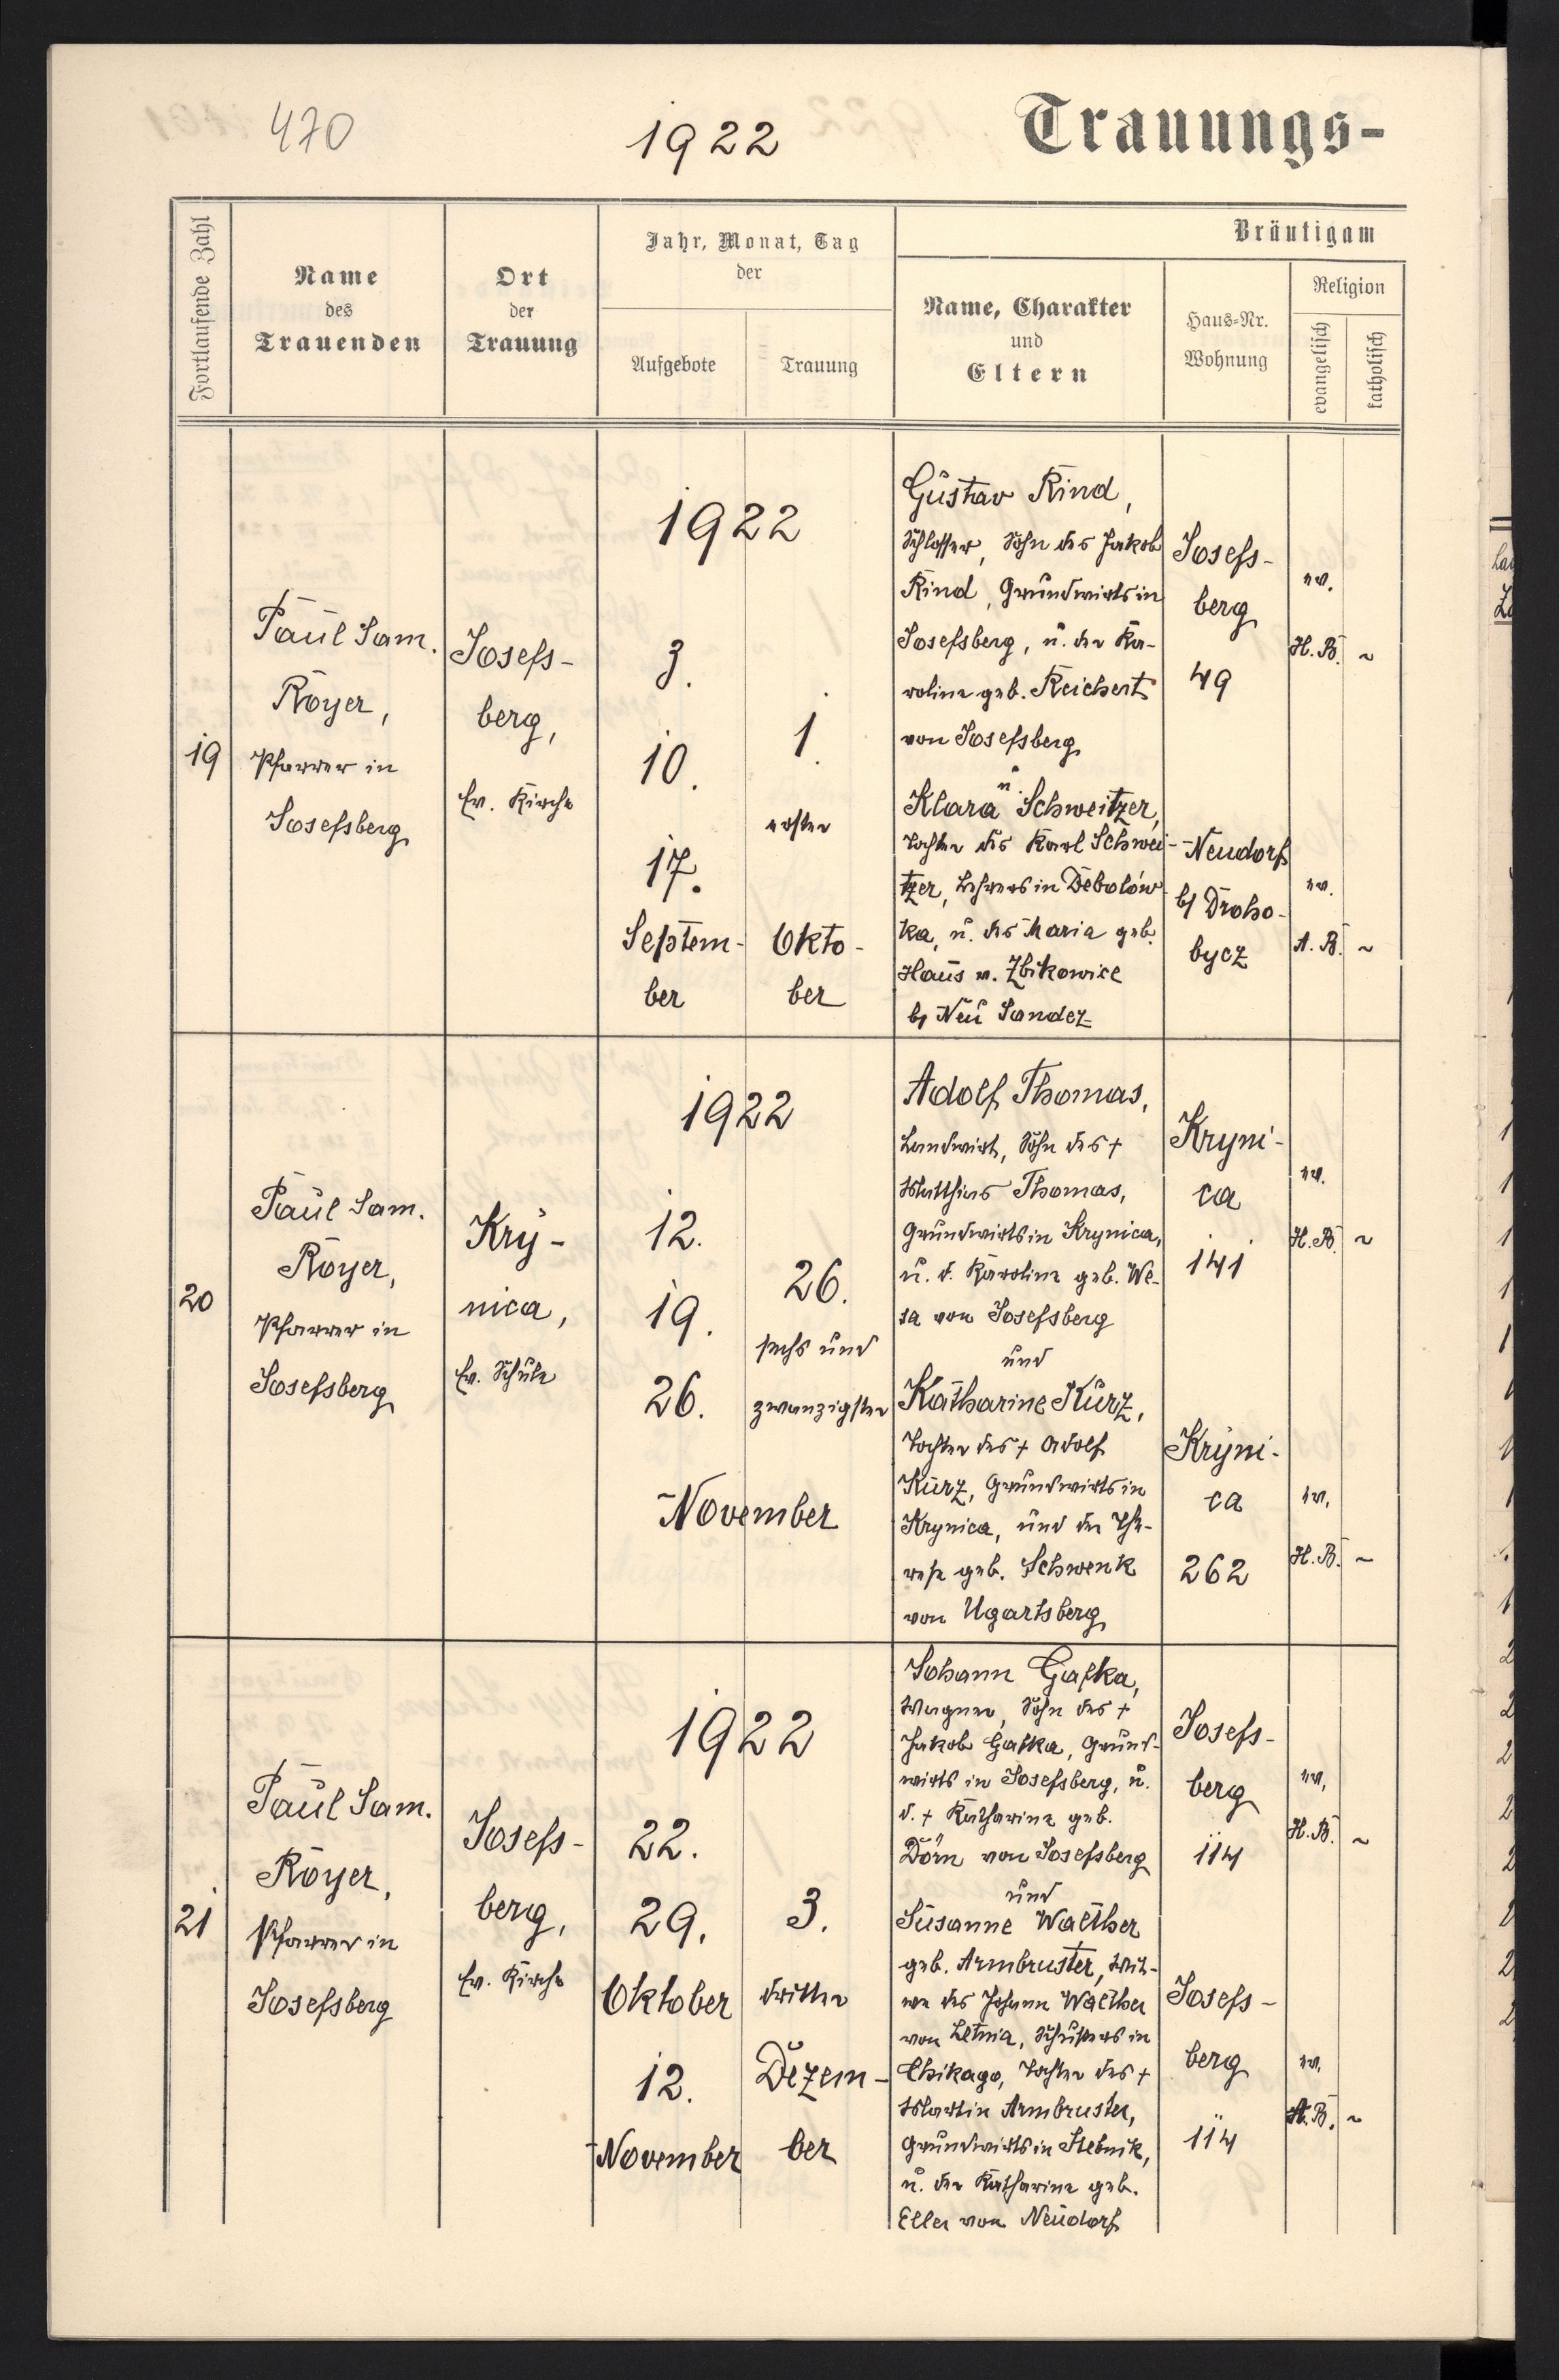 470
1922
Trauungs-
Fortlaufende Zahl
Name
des
Trauenden
Ort
der
Trauung
Jahr, Monat, Tag
der
Aufgebote
Trauung
Bräutigam
Name, Charakter
und
Eltern
Haus-Nr.
Wohnung
Religion
evangelisch
katholisch
19
Paul Sam.
Royer,
Pfarrer in
Josefsberg
Josefs-
berg,
Ev. Kirche
1922
3.
10.
17.
Septem-
ber
1.
erster
Okto-
ber
Gustav Rind,
Schlosser, Sohn des Jakob
Rind, Grundwirts in
Josefsberg, u. der Ka-
roline geb. Reichert
von Josefsberg
u.
Klara Schweitzer,
Tochter des Karl Schwei-
tzer, Lehrers in Debolów-
ka, u. des Maria geb.
Haus v. Zbikowice
b/ Neu Sandez
Josefs-
berg
49
Neudorf
b/ Droho-
bycz
ev.
H. B. ~
ev.
A. B. ~
20
Paul Sam.
Royer,
Pfarrer in
Josefsberg
Kry-
nica,
Ev. Schule
1922
12.
19.
26.
November
26.
sechs und
zwanzigster
Adolf Thomas,
Landwirt, Sohn des +
Matthias Thomas,
Grundwirts in Krynica,
u. d. Karoline geb. We-
sa von Josefsberg
und
Katharine Kurz,
Tochter des + Adolf
Kurz, Grundwirts in
Krynica, und der The-
rese geb. Schwenk
von Ugartsberg
Kryni-
ca
141
Kryni-
ca
262
ev.
H. B. ~
ev.
H. B. ~
21
Paul Sam.
Royer,
Pfarrer in
Josefsberg
Josefs-
berg,
Ev. Kirche
1922
22.
29.
Oktober
12.
November
3.
dritter
Dezem-
ber
Johann Gafka,
Wagner, Sohn des +
Jakob Gafka, Grund-
wirts in Josefsberg, u.
d. + Katharine geb.
Dörn von Josefsberg
und
Susanne Walther
geb. Armbruster, Wit-
we des Johann Walther
von Letnia, Schusters in
Chikago, Tochter des +
Martin Armbruster,
Grundwirts in Stebnik,
u. der Katharine geb.
Eller von Neudorf
Josefs-
berg
114
Josefs-
berg
114
ev.
H. B. ~
ev.
A. B. ~